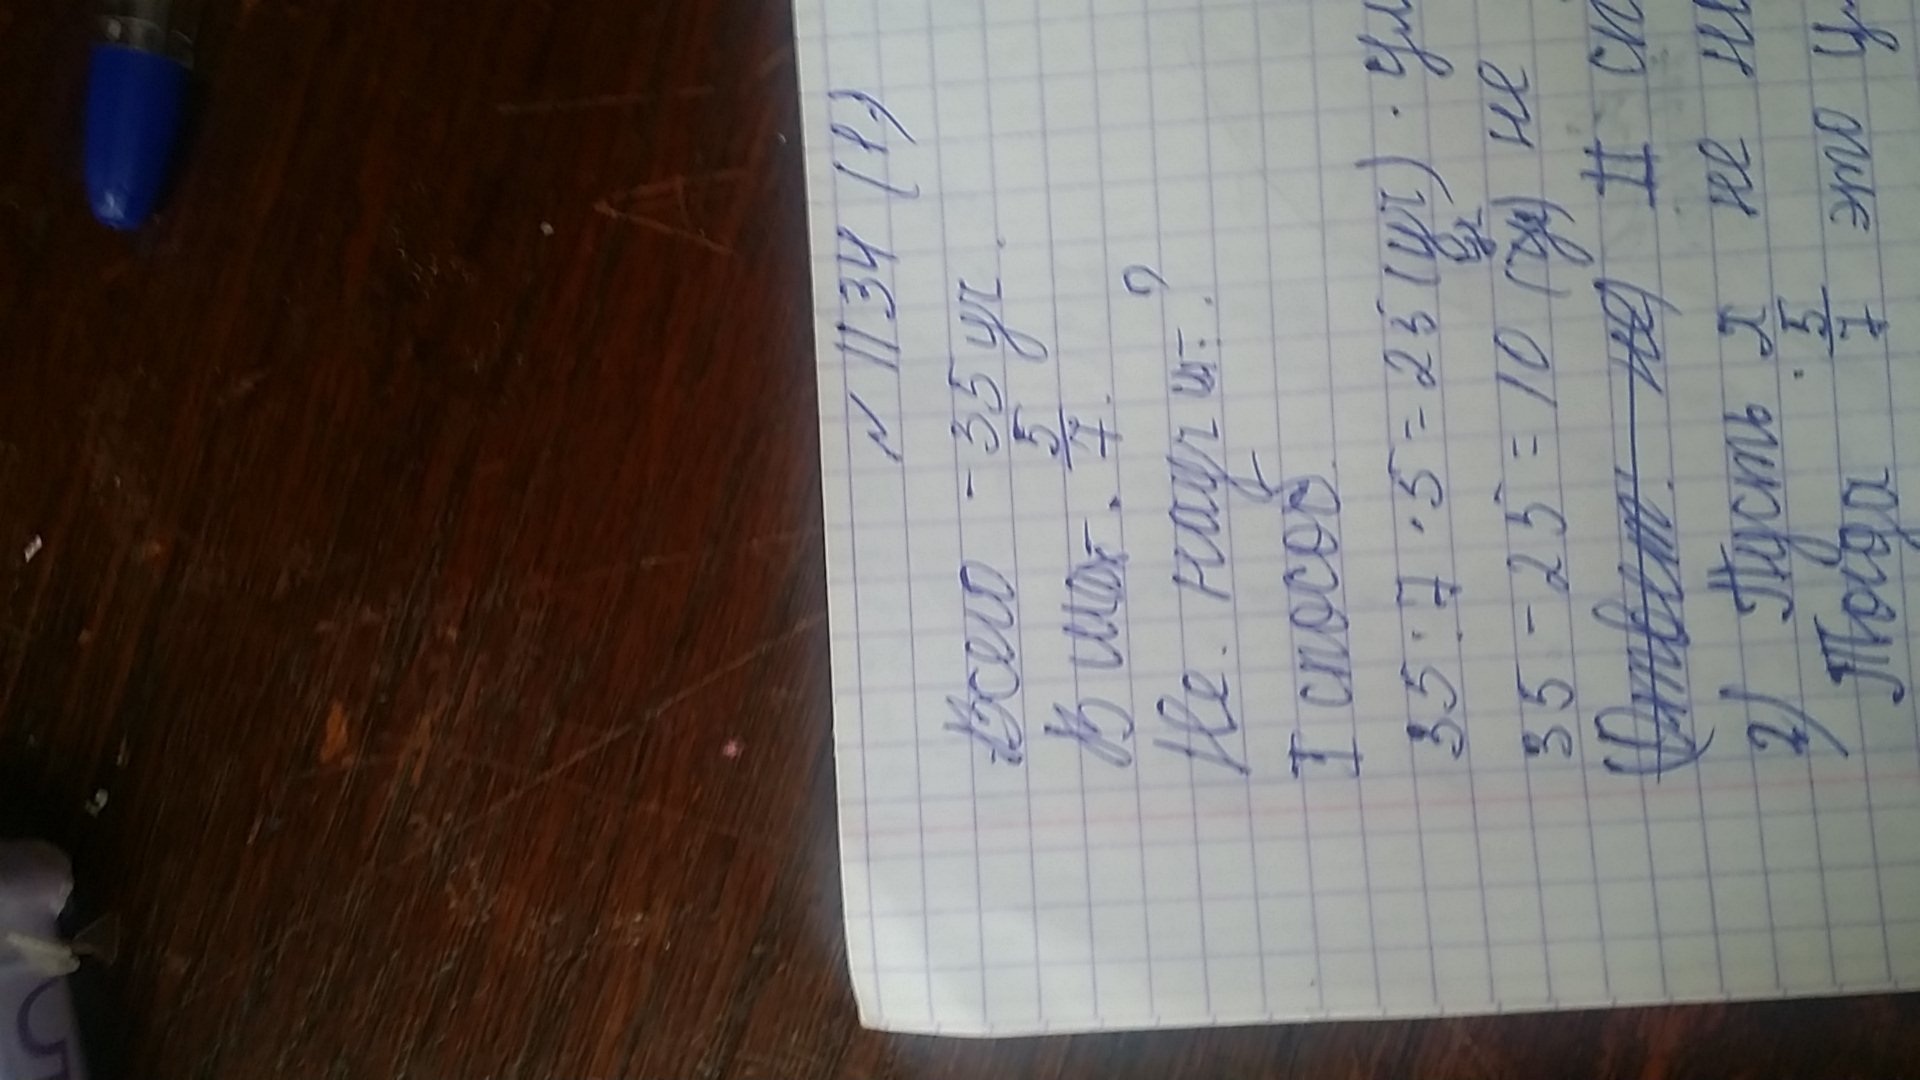 N 1134 (1)
Всего - 35 уч.
В шах. 5/7.
Не. науч. ш. ?
I способ
35 : 7 · 5 = 25 (уч) .
35 - 25 = 10 (уч) не
Ответ. II сп
2) Пусть x не
Тогда · 5/7 это
5